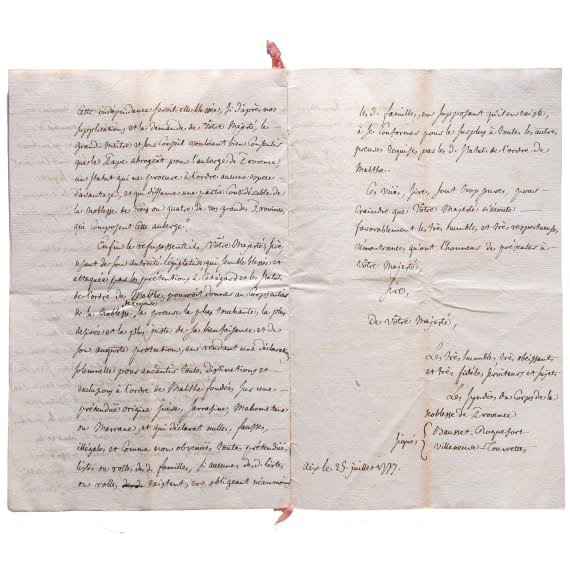 Cette indépendance seroit-elle blessée, si d'après nos
supplications et la demande de Vôtre Majesté, le
grand Maître et son Conseil vouloient bien Consentir
que le Pape abrogeât pour l'auberge de Provence
un statut qui ne procure à l'ordre aucune espece
d'avantage, et qui diffame une partie Considérable de
la noblesse de trois ou quatre de vos grandes Provinces,
qui Composent cette auberge?
Enfin le refusassent-ils, Vôtre Majesté, Sire,
usant de son autorité législative qui semble blessée et
attaquée par les prétentions à cet égard et les statuts
de l'ordre de Malthe, pourroit donner au Corps entier
de la Noblesse du royaume la preuve la plus touchante, la plus
desirée et la plus juste de sa bienfaisance et de
son auguste protection, en rendant une déclaration
solemnelle pour anéantir toutes distinctions et
exclusions à l'ordre de Malthe fondées sur une
prétendue origine juive, sarrasine Mahometane
ou Marrane, et qui déclarât nulles, fausses,
illégales, et comme non obvenues, toutes prétendues
listes ou rolles de d. familles, si aucunes de d. listes
ou rolles existent, en obligeant néanmoins
les d. familles, en supposant qu'il en existe,
à se Conformer pour le surplus à toutes les autres
preuves requises par les d. statuts de l'ordre de
Malthe.
Ces vües, Sire, sont trop pures, pour
craindre que Vôtre Majesté n'écoute
favorablement les très humbles et très respectueuses
remontrances qu'ont l'honneur de présenter à
Vôtre Majesté,
Sire,
De Vôtre Majesté,
Les très humbles, très obéissants
et très fidèles serviteurs et sujets
Les Syndics du Corps de la
noblesse de Provence
signés { Bausset-Roquefort
Villeneuve-Tourrettes
Aix le 25. juillet 1777.